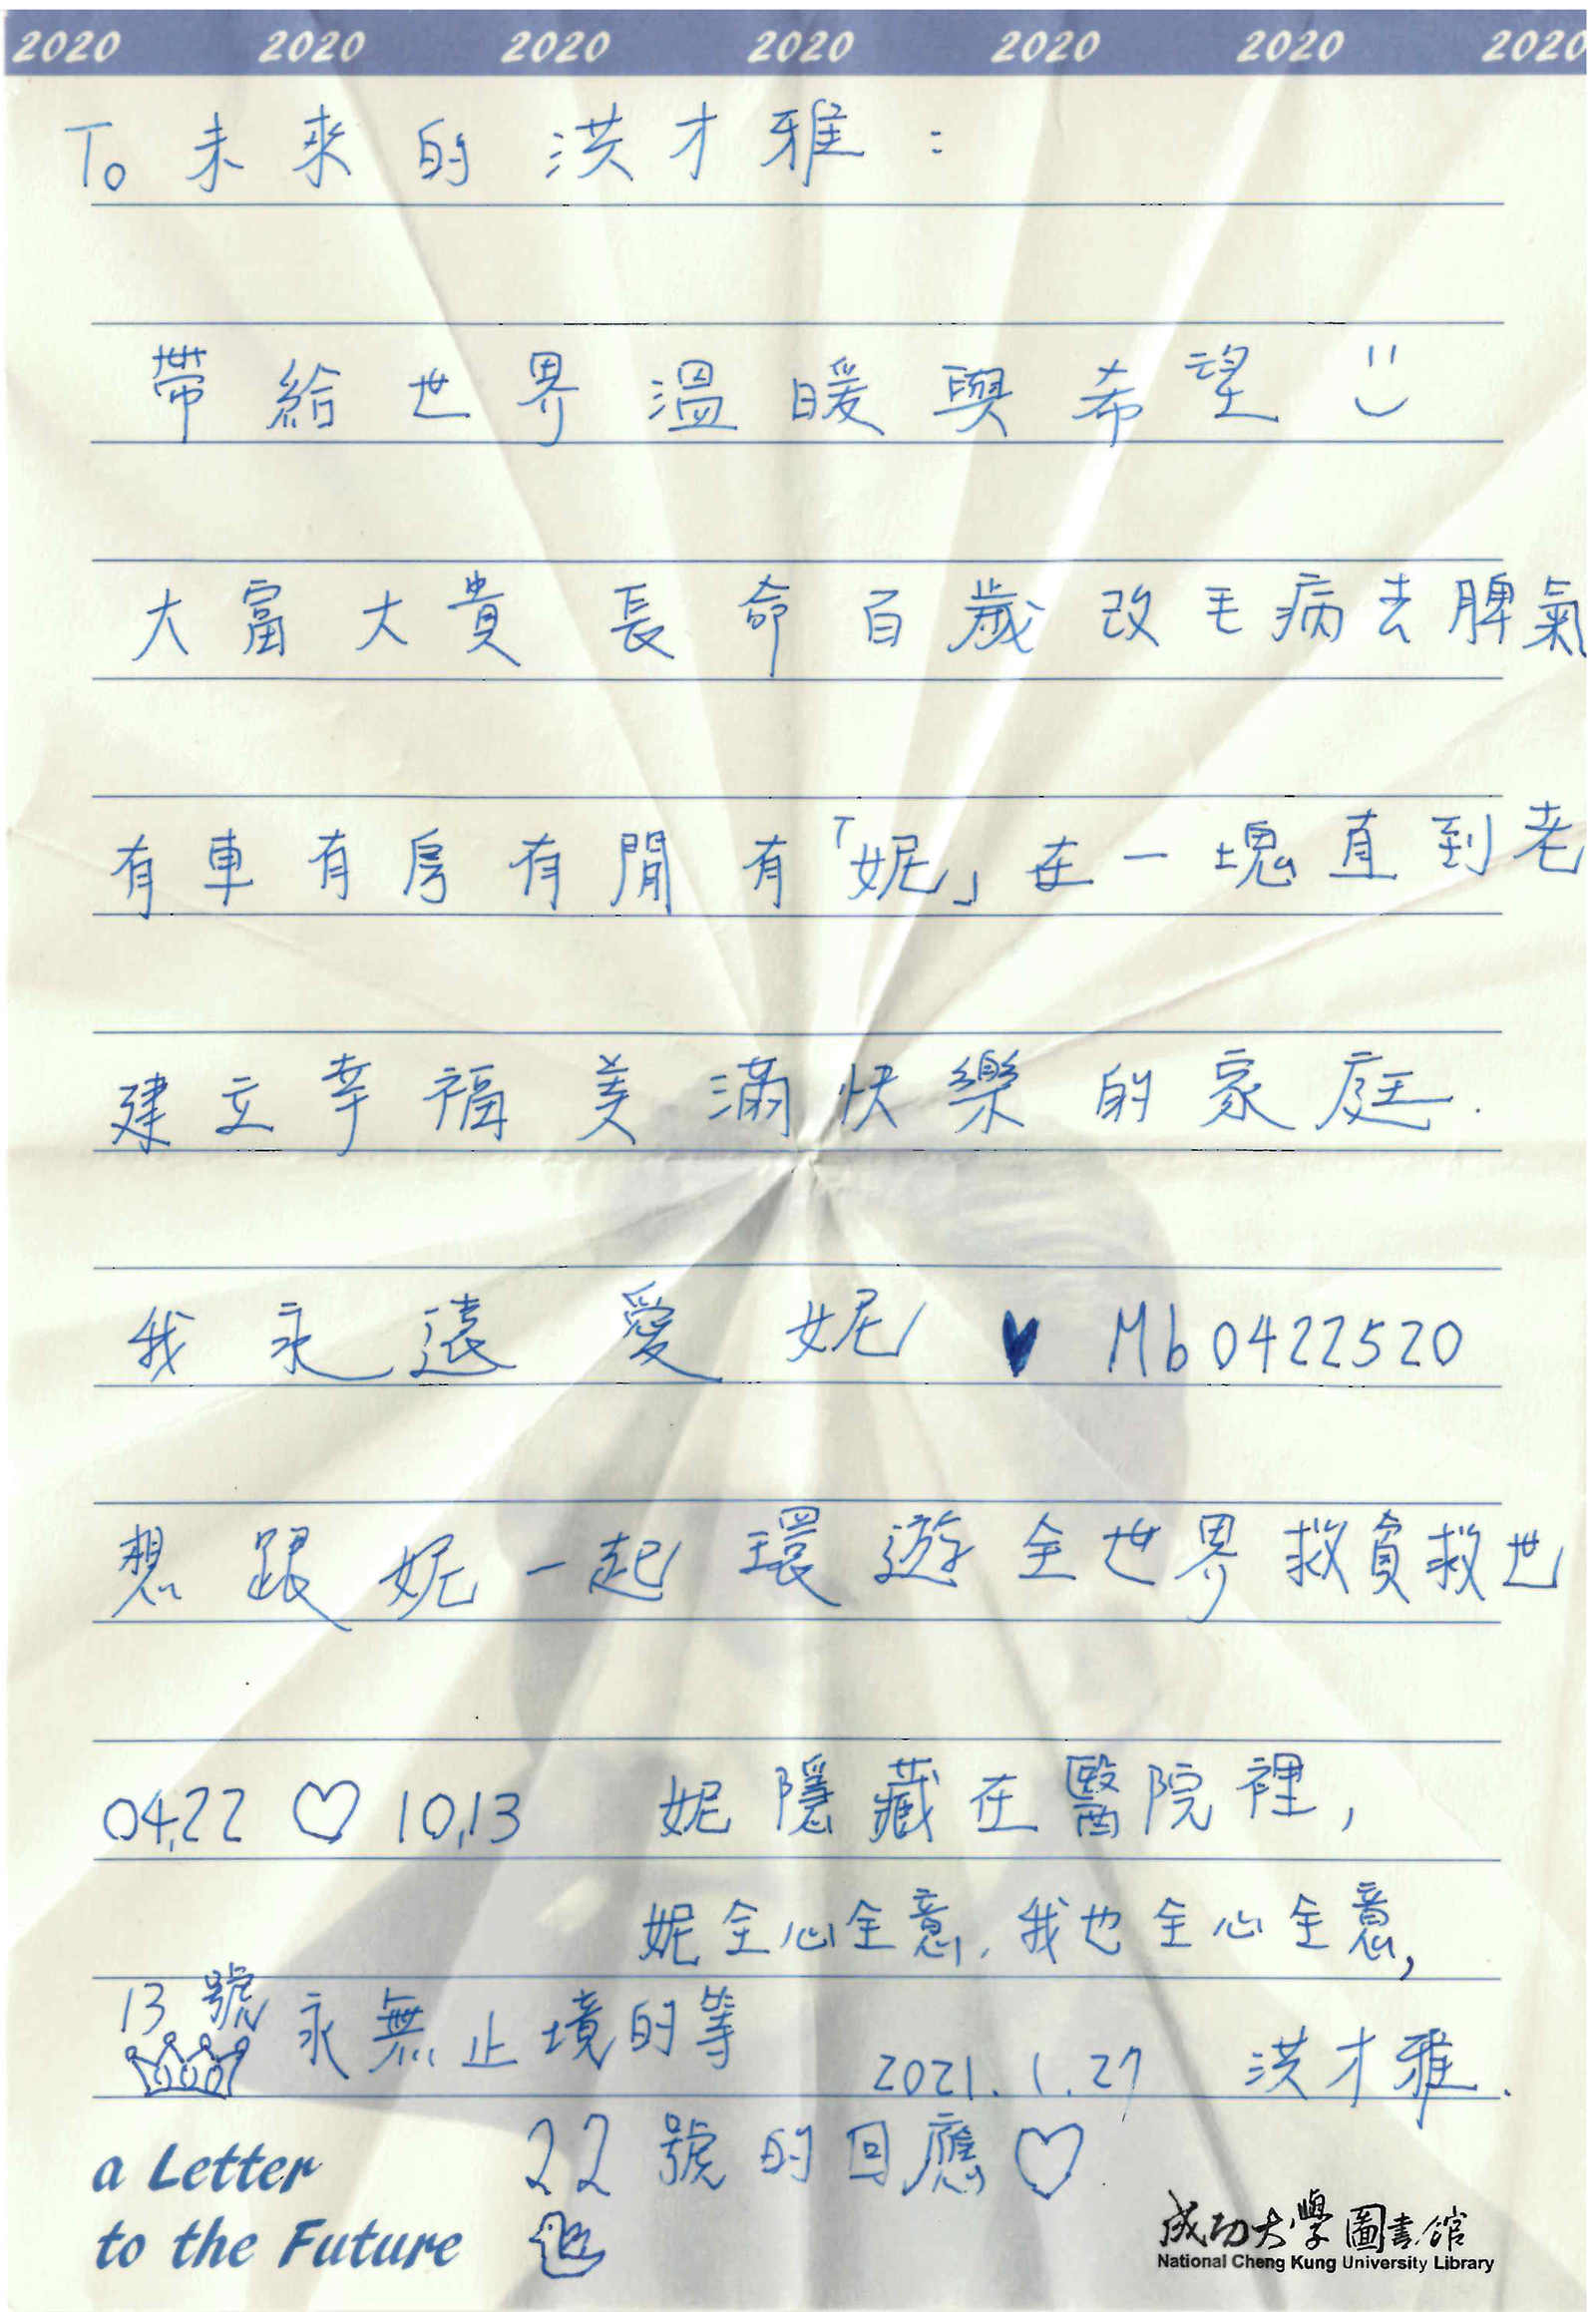 2020 2020 2020 2020 2020 2020 2020
To 未來的洪才雅：
帶給世界溫暖與希望
大富大貴 長命百歲 改毛病去脾氣
有車有房有閒 有「妮」在一塊直到老
建立幸福美滿快樂的家庭.
我永遠愛妮 ♥ Mb0422520
想跟妮一起環遊全世界救貧救世
04,22 ♡ 10,13 妮隱藏在醫院裡,
妮全心全意, 我也全心全意,
13號永無止境的等
2021.1.27 洪才雅.
22號的回應♡
a Letter
to the Future
成功大學圖書館
National Cheng Kung University Library